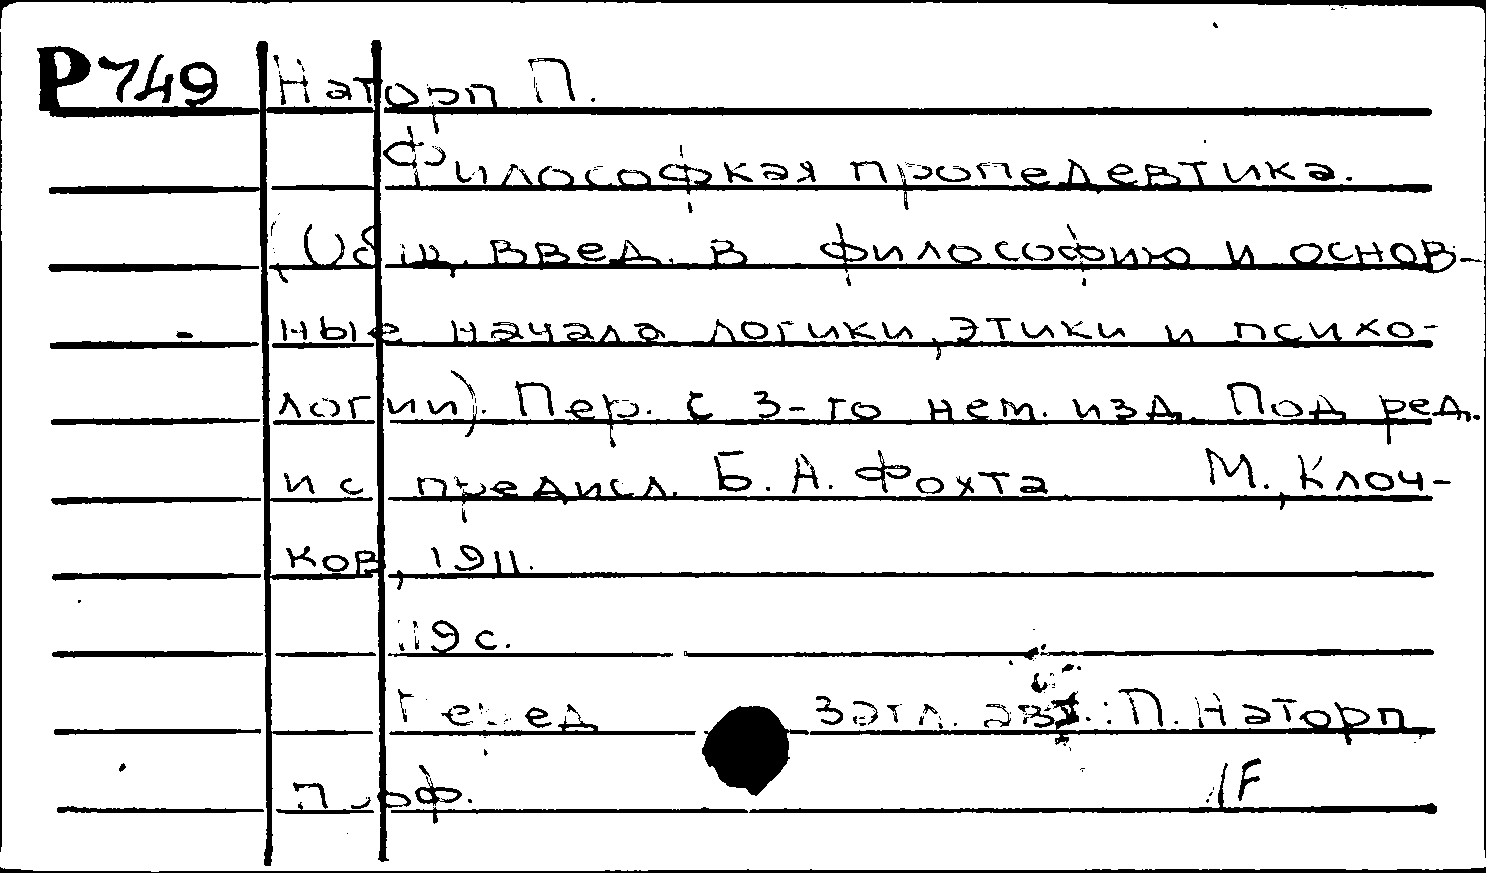 P749 Наторп П.
Философкая пропедевтика.
(Общ. введ. в философию и основ-
ные начала логики, этики и психо-
логии). Пер. с 3-го нем. изд. Под ред.
и с предисл. Б. А. Фохта М., Клоч-
ков, 1911.
119 с.
Перед загл. авт.: П. Наторп,
проф.